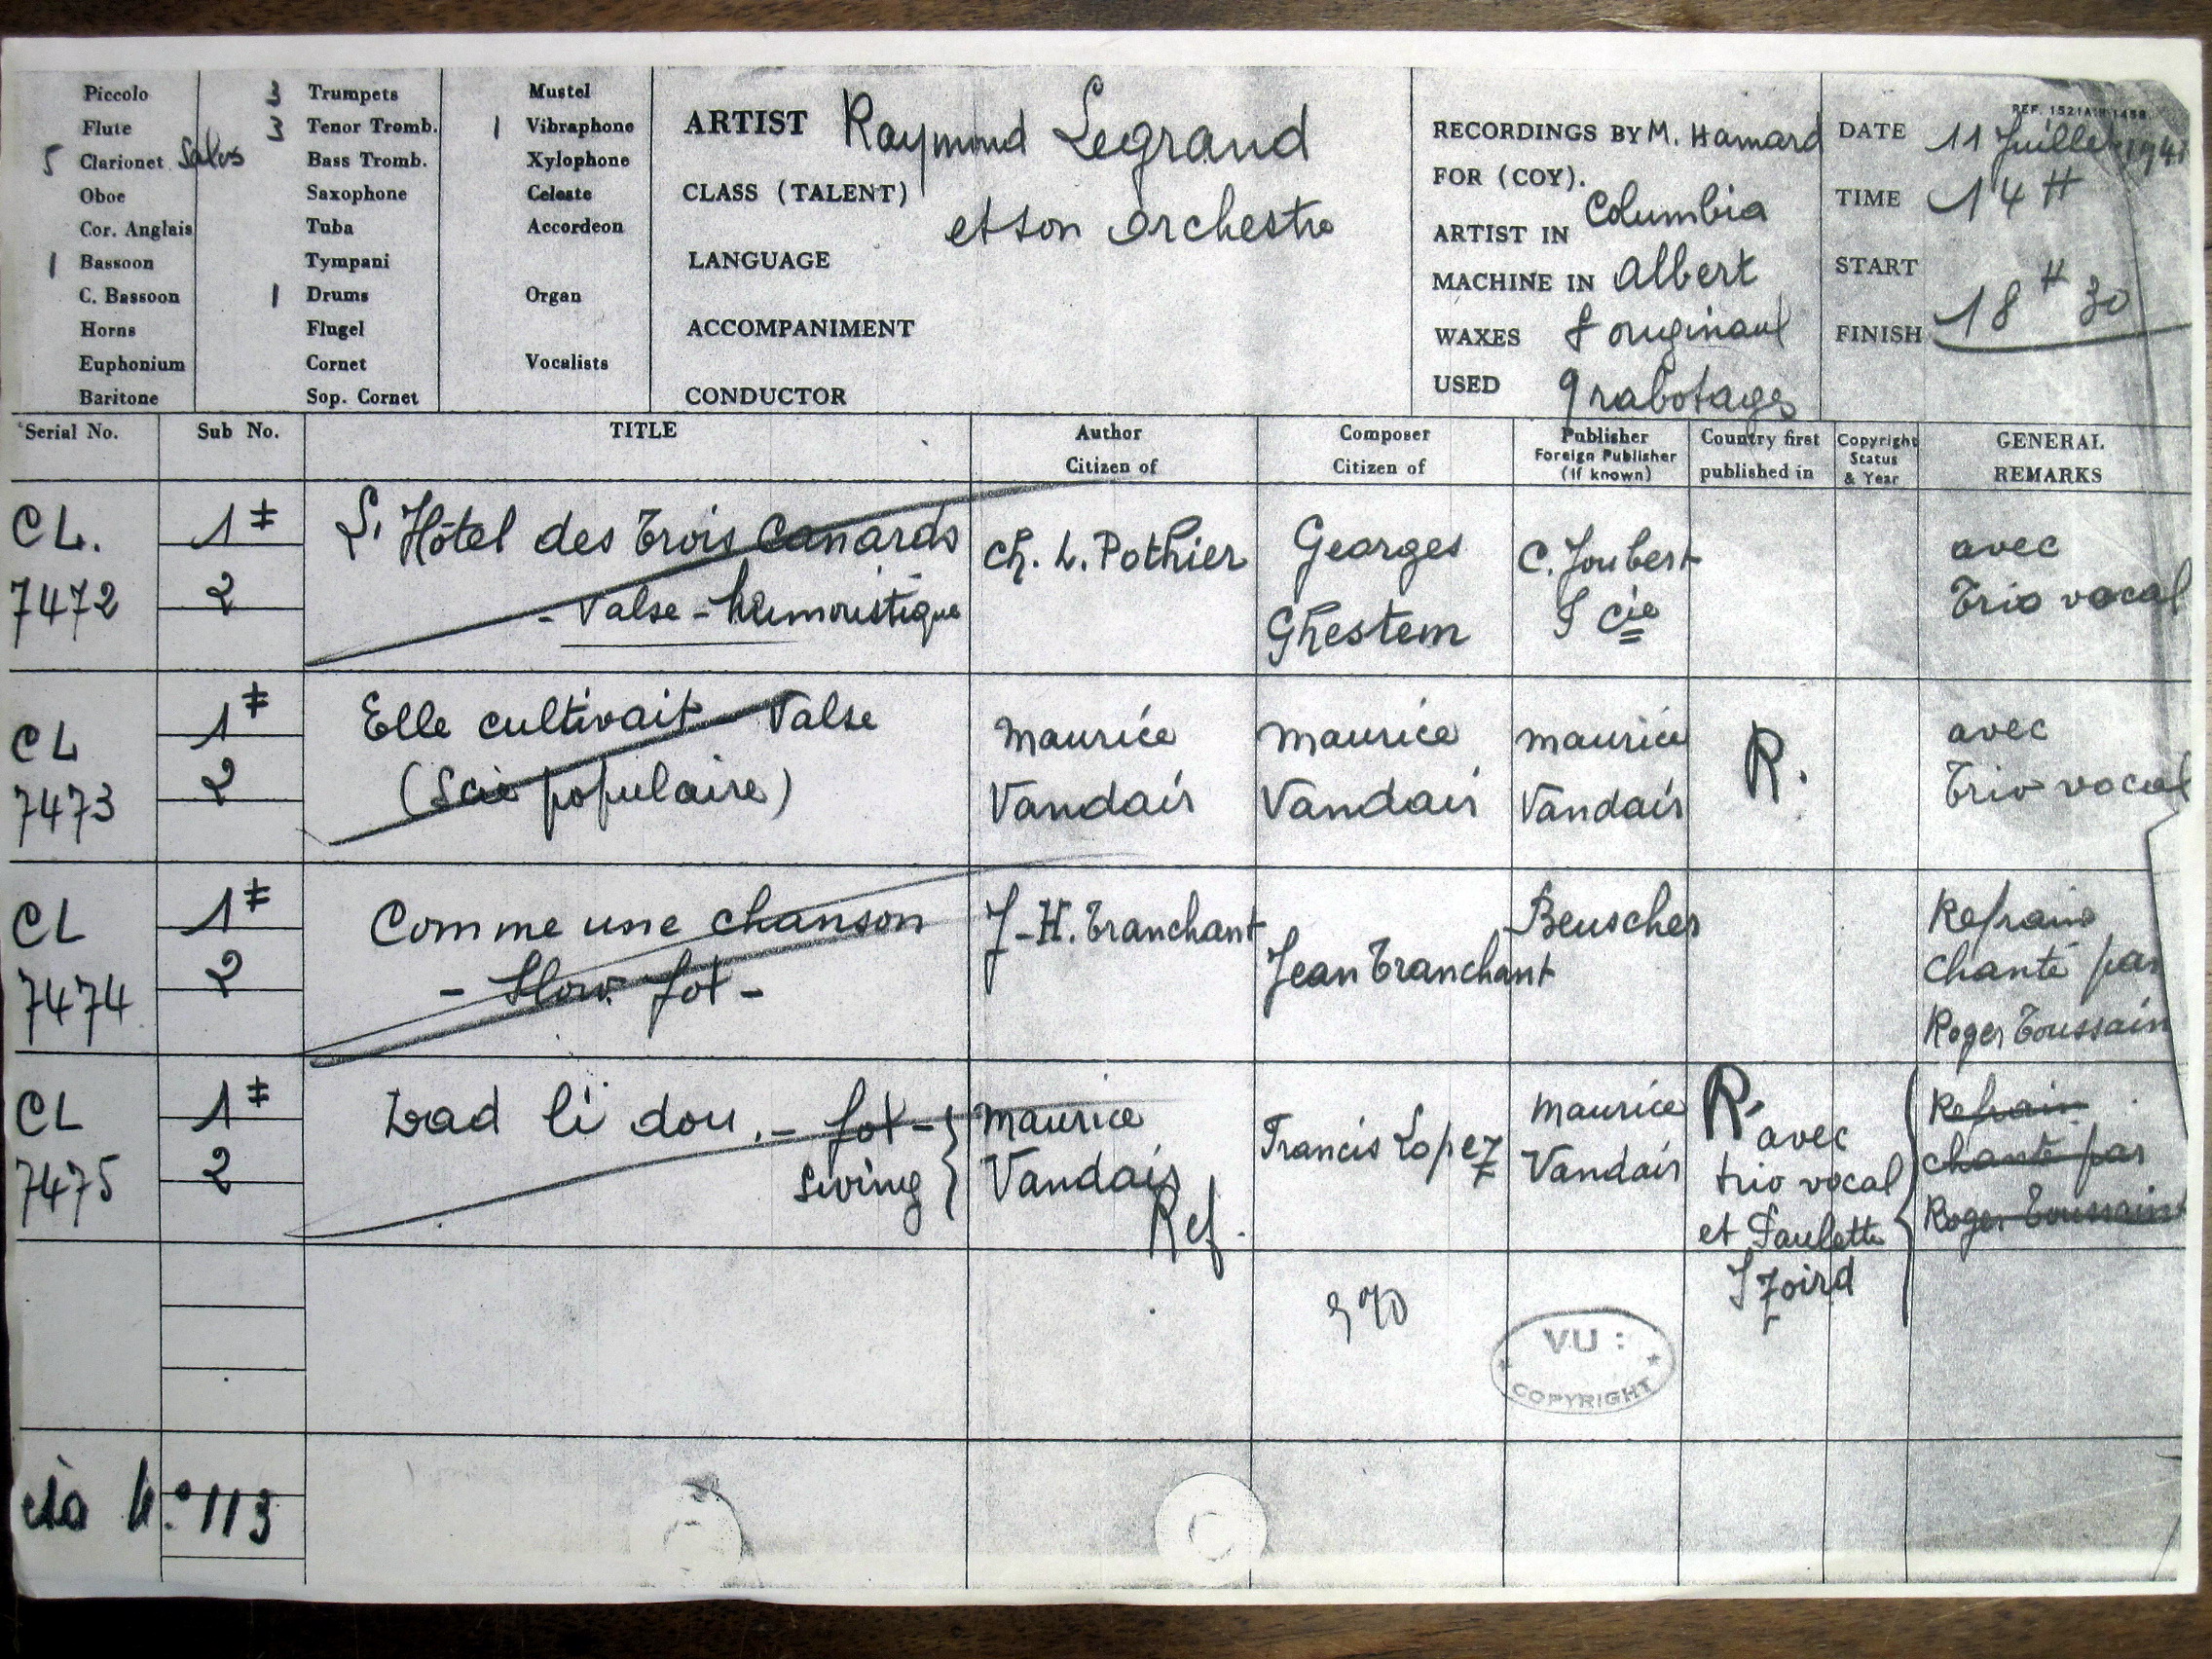 REF. 1521A
Piccolo 3 Trumpets Mustel
Flute 3 Tenor Tromb. 1 Vibraphone
5 Clarionet Saxos Bass Tromb. Xylophone
Oboe Saxophone Celeste
Cor. Anglais Tuba Accordeon
1 Bassoon Tympani
C. Bassoon 1 Drums Organ
Horns Flugel
Euphonium Cornet Vocalists
Baritone Sop. Cornet
ARTIST Raymond Legrand
CLASS (TALENT) et son Orchestre
LANGUAGE
ACCOMPANIMENT
CONDUCTOR
RECORDINGS BY M. Hamard
FOR (COY). Columbia
ARTIST IN
MACHINE IN Albert
WAXES 8 originaux
USED 9 rabotages
DATE 11 Juillet 1941
TIME 14 H
START
FINISH 18 H 30
Serial No. Sub No. TITLE Author Citizen of Composer Citizen of Publisher Foreign Publisher (If known) Country first published in Copyright Status & Year GENERAL REMARKS
CL. 1 ‡ L'Hôtel des Trois Canards Ch. L. Pothier Georges C. Joubert avec
7472 2 - Valse - humoristique Ghestem & Cie Trio vocal
CL 1 ‡ Elle cultivait - Valse Maurice Maurice Maurice R. avec
7473 2 (Scie populaire) Vandair Vandair Vandair Trio vocal
CL 1 ‡ Comme une chanson J-H. Tranchant Jean Tranchant Beuscher Refrain
7474 2 - Slow fox - chanté par
Roger Toussain
CL 1 ‡ Dad li dou. - fox - Maurice Francis Lopez Maurice R. avec Refrain
7475 2 swing Vandair Vandair trio vocal chanté par
Ref. et Paulette Roger Toussaint
Izoird
VU :
COPYRIGHT
N° 113